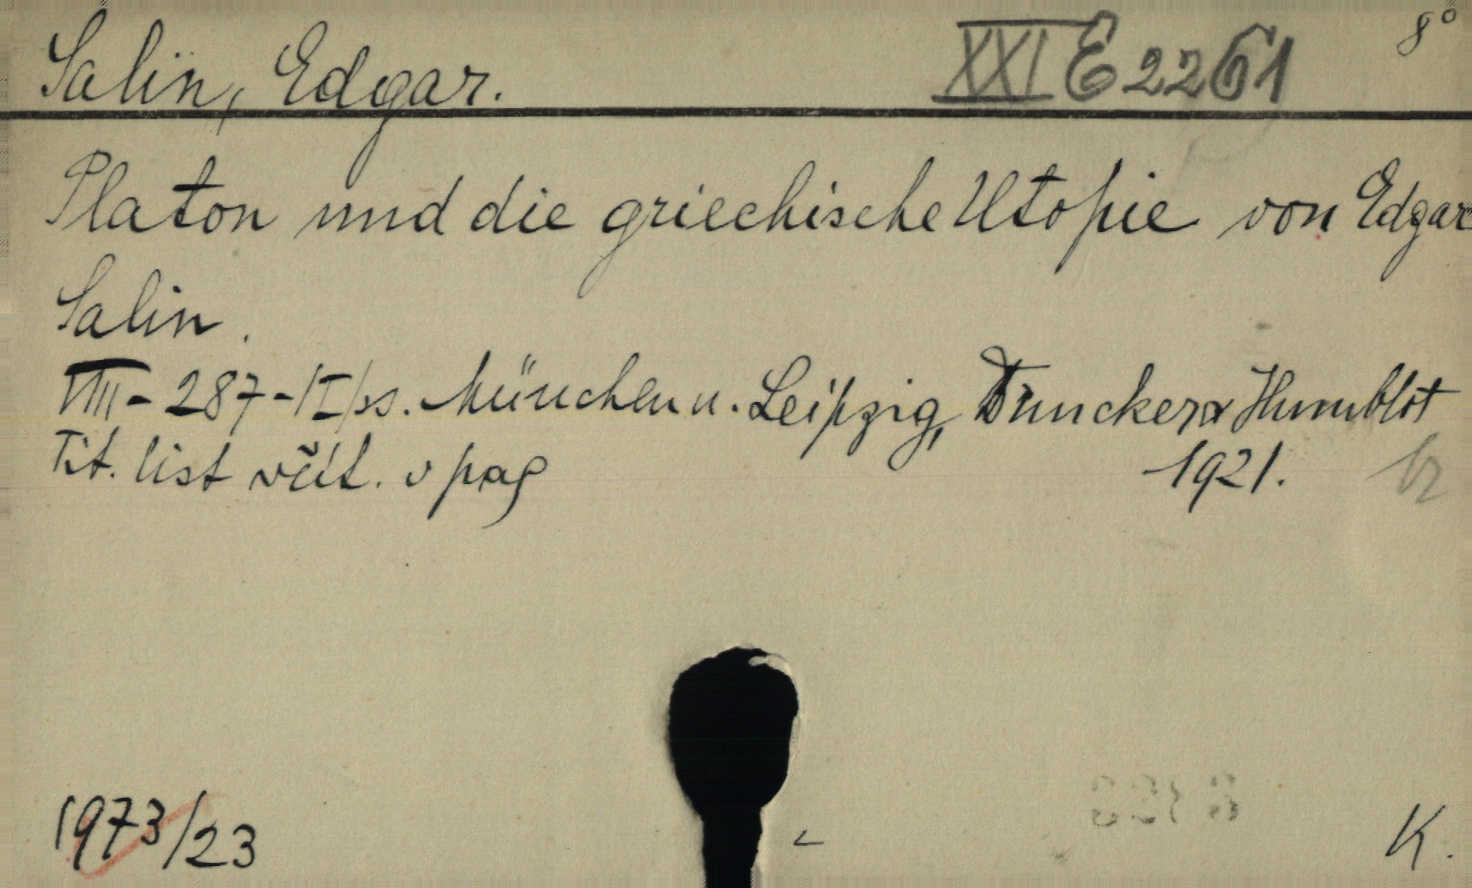 Salin, Edgar. XXI E 2261 8°
Platon und die griechische Utopie von Edgar
Salin.
VIII - 287 - /I/ ss. München u. Leipzig, Duncker & Humblot
Tit. list včít. v pag 1921.
1973/23 K.